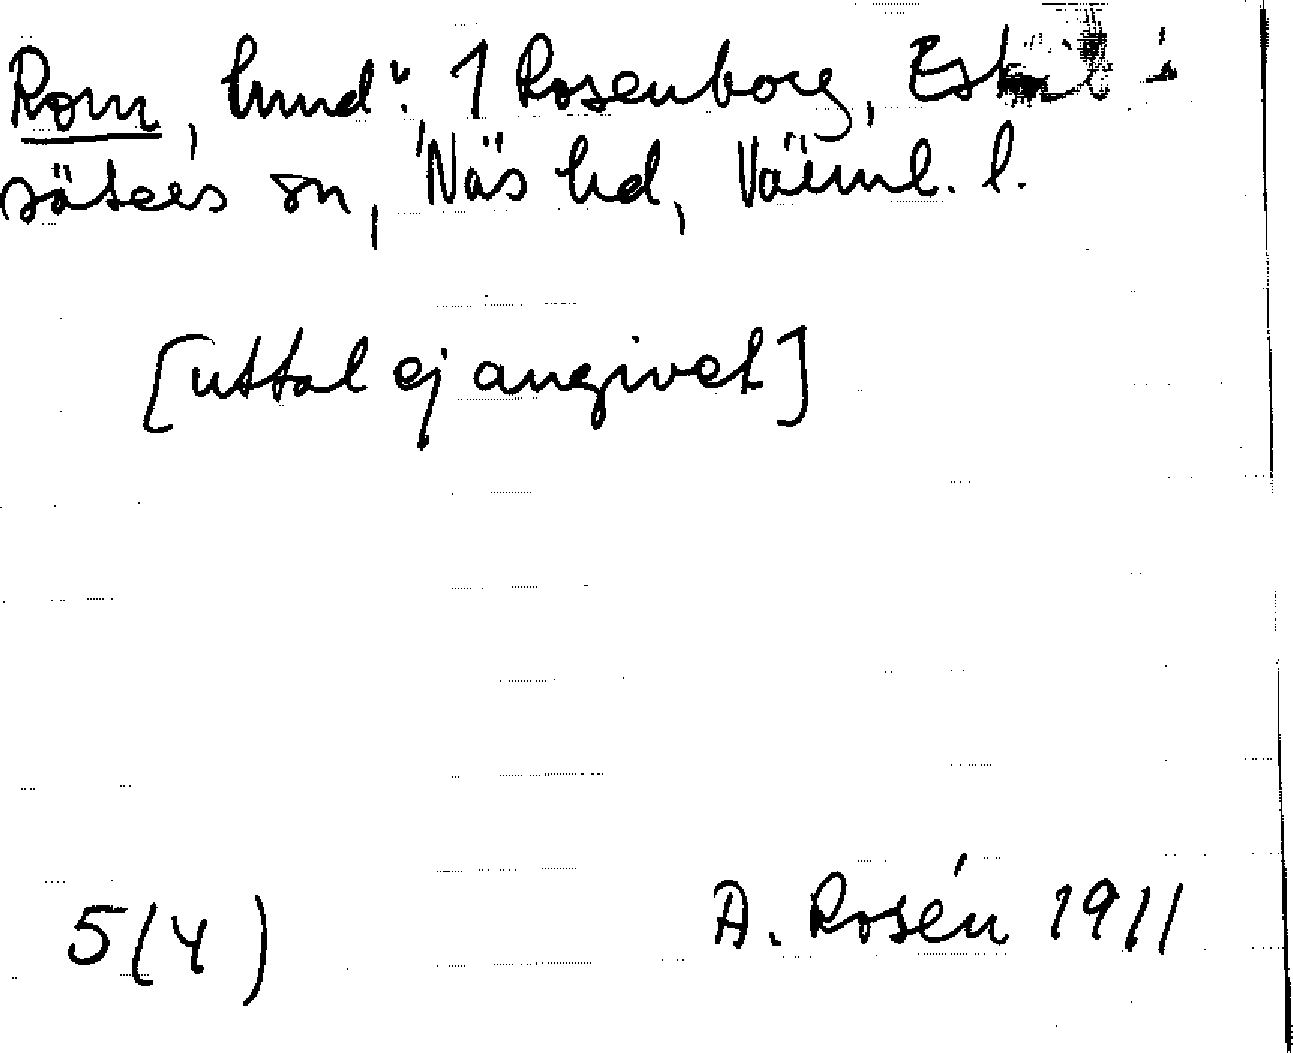 Rom, hmd u. 1 Rosenborg, Eskil-
säters sn, Näs hd, Värml. l.
[uttal ej angivet]
5(4) A. Rosén 1911